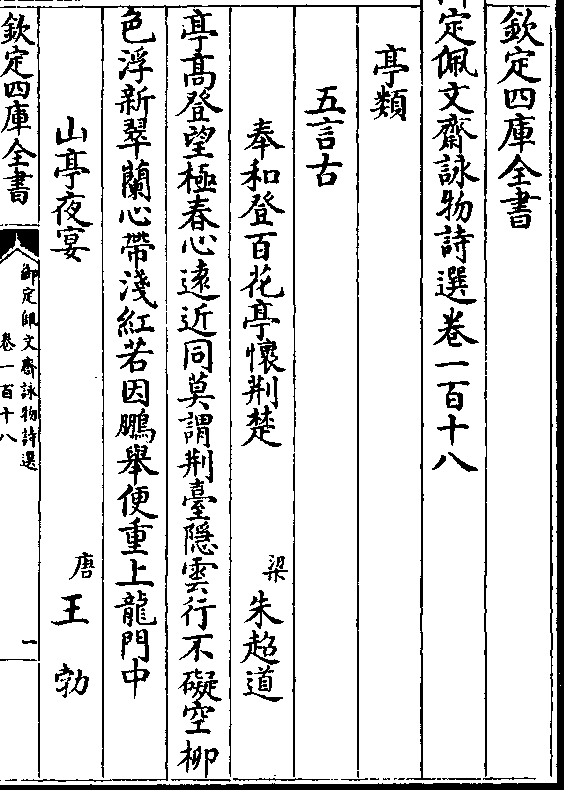 欽定四庫全書
定佩文齋詠物詩選卷一百十八
亭類
五言古
奉和登百花亭懷荆楚 梁 朱超道
亭高登望極春心遠近同莫謂荆臺隠雲行不礙空柳
色浮新翠蘭心帶淺紅若因鵬舉便重上龍門中
山亭夜宴 唐 王勃
欽定四庫全書
御定佩文齋詠物詩選
卷一百十八
一